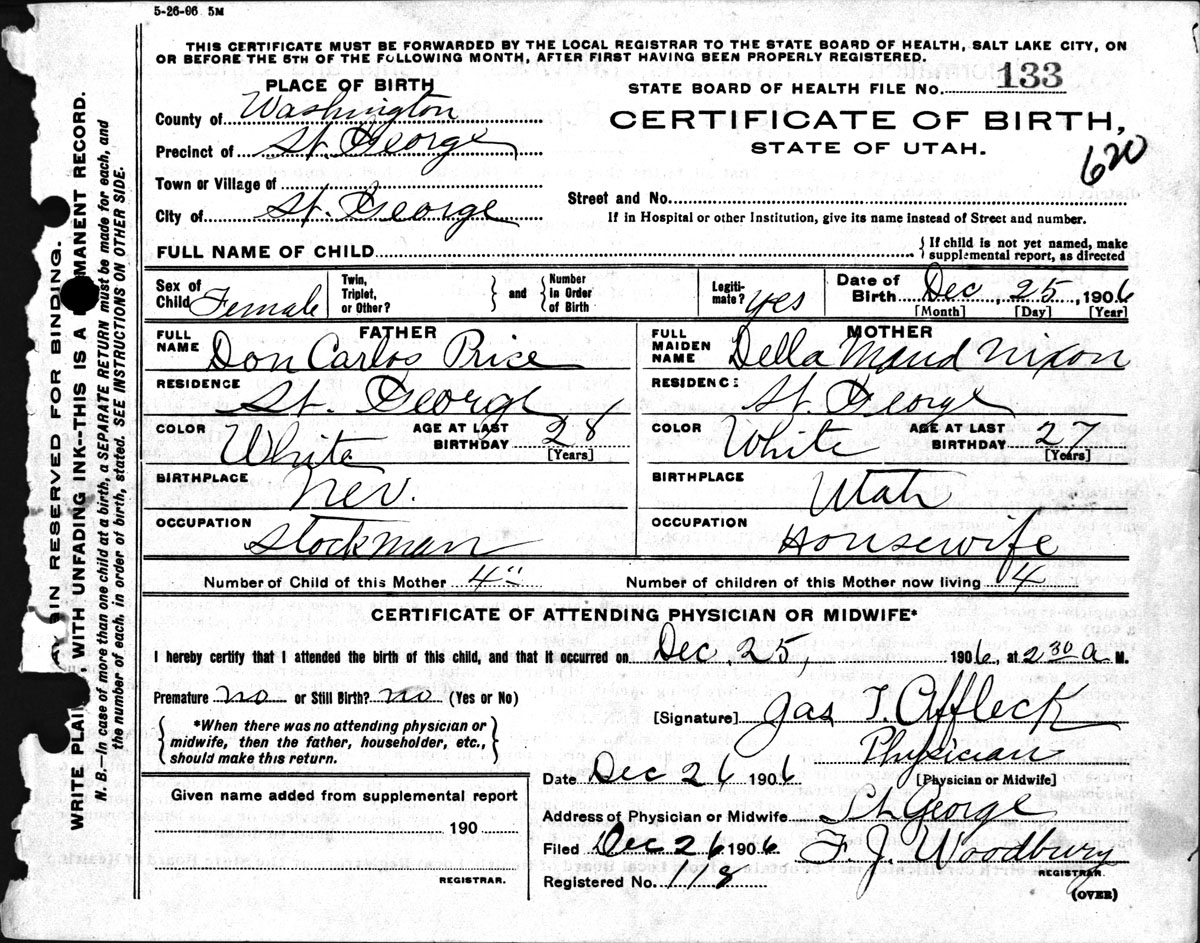 5-26-06 5M
THIS CERTIFICATE MUST BE FORWARDED BY THE LOCAL REGISTRAR TO THE STATE BOARD OF HEALTH, SALT LAKE CITY, ON
OR BEFORE THE 5TH OF THE FOLLOWING MONTH, AFTER FIRST HAVING BEEN PROPERLY REGISTERED.
PLACE OF BIRTH
County of Washington
Precinct of St. George
Town or Village of
City of St. George
STATE BOARD OF HEALTH FILE No. 133
CERTIFICATE OF BIRTH,
STATE OF UTAH.
620
Street and No.
If in Hospital or other Institution, give its name instead of Street and number.
FULL NAME OF CHILD { If child is not yet named, make
supplemental report, as directed
Sex of Child Female
Twin, Triplet, or Other? } and { Number in Order of Birth
Legitimate? yes
Date of Birth Dec, 25, 1906
[Month] [Day] [Year]
FATHER
FULL NAME Don Carlos Price
RESIDENCE St. George
COLOR White AGE AT LAST BIRTHDAY 28
[Years]
BIRTHPLACE Nev.
OCCUPATION Stockman
MOTHER
FULL MAIDEN NAME Della Maud Nixon
RESIDENCE St. George
COLOR White AGE AT LAST BIRTHDAY 27
[Years]
BIRTHPLACE Utah
OCCUPATION Housewife
Number of Child of this Mother 4" Number of children of this Mother now living 4
CERTIFICATE OF ATTENDING PHYSICIAN OR MIDWIFE*
I hereby certify that I attended the birth of this child, and that it occurred on Dec. 25, 1906, at 2 30 a M.
Premature no or Still Birth? no (Yes or No)
{ *When there was no attending physician or
midwife, then the father, householder, etc.,
should make this return. }
[Signature] Jas T. Affleck
Physician
Date Dec 26 1906 [Physician or Midwife]
Address of Physician or Midwife St George
Filed Dec 26 1906 F. J. Woodbury
REGISTRAR.
Registered No. 118
(OVER)
Given name added from supplemental report
190
REGISTRAR.
AY IN RESERVED FOR BINDING.
WRITE PLAI WITH UNFADING INK--THIS IS A MANENT RECORD.
N. B.—In case of more than one child at a birth, a SEPARATE RETURN must be made for each, and
the number of each, in order of birth, stated. SEE INSTRUCTIONS ON OTHER SIDE.